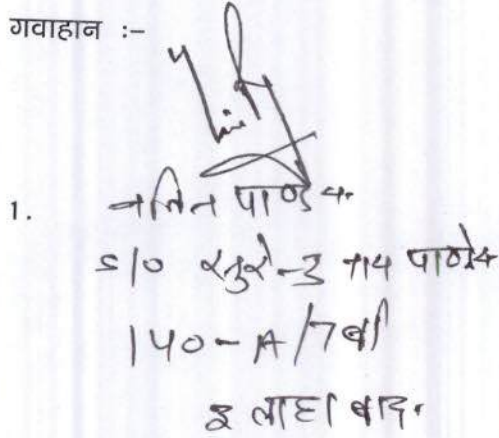 गवाहान :-
1. पाण्डेय
S/O सुरेन्द्र नाथ पाण्डेय
140-A/7बी
इलाहाबाद.